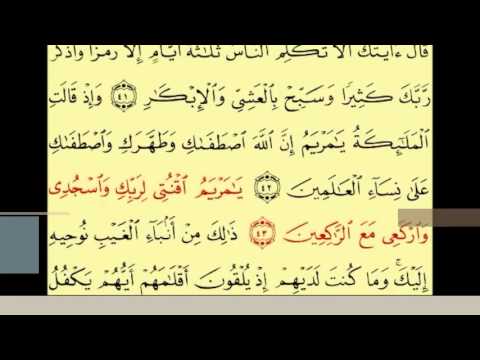 قَالَ ءَايَتُكَ أَلَّا تُكَلِّمَ ٱلنَّاسَ ثَلَـٰثَةَ أَيَّامٍ إِلَّا رَمۡزٗا وَٱذۡكُر
رَّبَّكَ كَثِيرٗا وَسَبِّحۡ بِٱلۡعَشِيِّ وَٱلۡإِبۡكَـٰرِ ٤١ وَإِذۡ قَالَتِ
ٱلۡمَلَـٰٓئِكَةُ يَـٰمَرۡيَمُ إِنَّ ٱللَّهَ ٱصۡطَفَىٰكِ وَطَهَّرَكِ وَٱصۡطَفَىٰكِ
عَلَىٰ نِسَآءِ ٱلۡعَـٰلَمِينَ ٤٢ يَـٰمَرۡيَمُ ٱقۡنُتِي لِرَبِّكِ وَٱسۡجُدِي
وَٱرۡكَعِي مَعَ ٱلرَّٰكِعِينَ ٤٣ ذَٰلِكَ مِنۡ أَنۢبَآءِ ٱلۡغَيۡبِ نُوحِيهِ
إِلَيۡكَۚ وَمَا كُنتَ لَدَيۡهِمۡ إِذۡ يُلۡقُونَ أَقۡلَـٰمَهُمۡ أَيُّهُمۡ يَكۡفُلُ